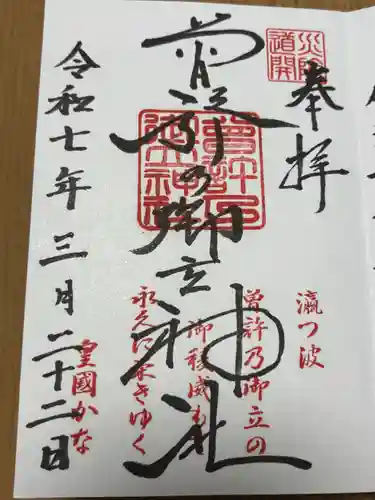 災除
道開
奉拝
曾許乃御立神社
曾許乃
御立神社
令和七年三月二十二日
瀛つ波
曽許乃御立の
御稜威も
きゆく
皇國かな